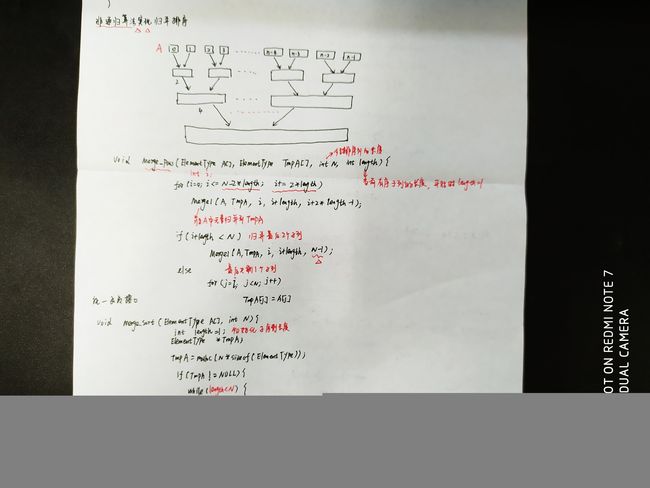 }
非递归算法实现 归并排序
A 0 1 2 3 …… n-4 n-3 n-2 n-1
2 ……
4 ……
待排序列的长度
void Merge_pass(ElementType A[], ElementType TmpA[], int N, int length){
int i;
当前有序子列的长度, 开始时length=1
for (i=0; i<=N-2*length; i+=2*length)
Merge1(A, TmpA, i, i+length, i+2*length-1);
将A中元素归并到TmpA
if (i+length < N) 归并最后2个子列
Merge1(A,TmpA, i, i+length, N-1);
else 最后只剩1个子列
for (j=i; j<N; j++)
统一函数接口 TmpA[j] = A[j]
void Merge_sort(ElementType A[], int N){
int length=1; 初始化子序列长度
ElementType *TmpA;
TmpA = malloc(N*sizeof(ElementType));
if (TmpA != NULL){
while(length<N) {
SHOT ON REDMI NOTE 7
DUAL CAMERA